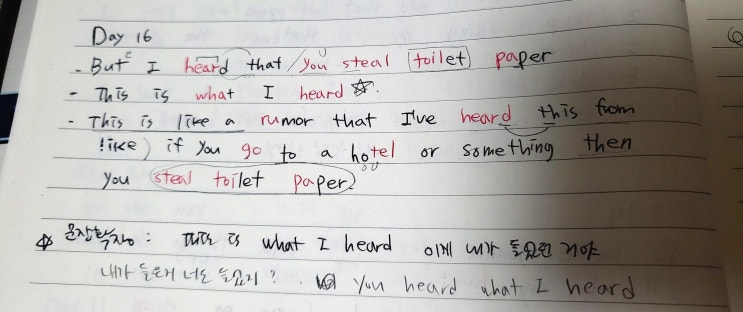 Day 16
- But I heard that you steal toilet paper
- This is what I heard ☆.
- This is like a rumor that I've heard this from
like) if you go to a hotel or something then
you steal toilet paper.
☆ 문장확장 : This is what I heard 이게 내가 들었던 거야
내가 들은거 너도 들었지? you heard what I heard